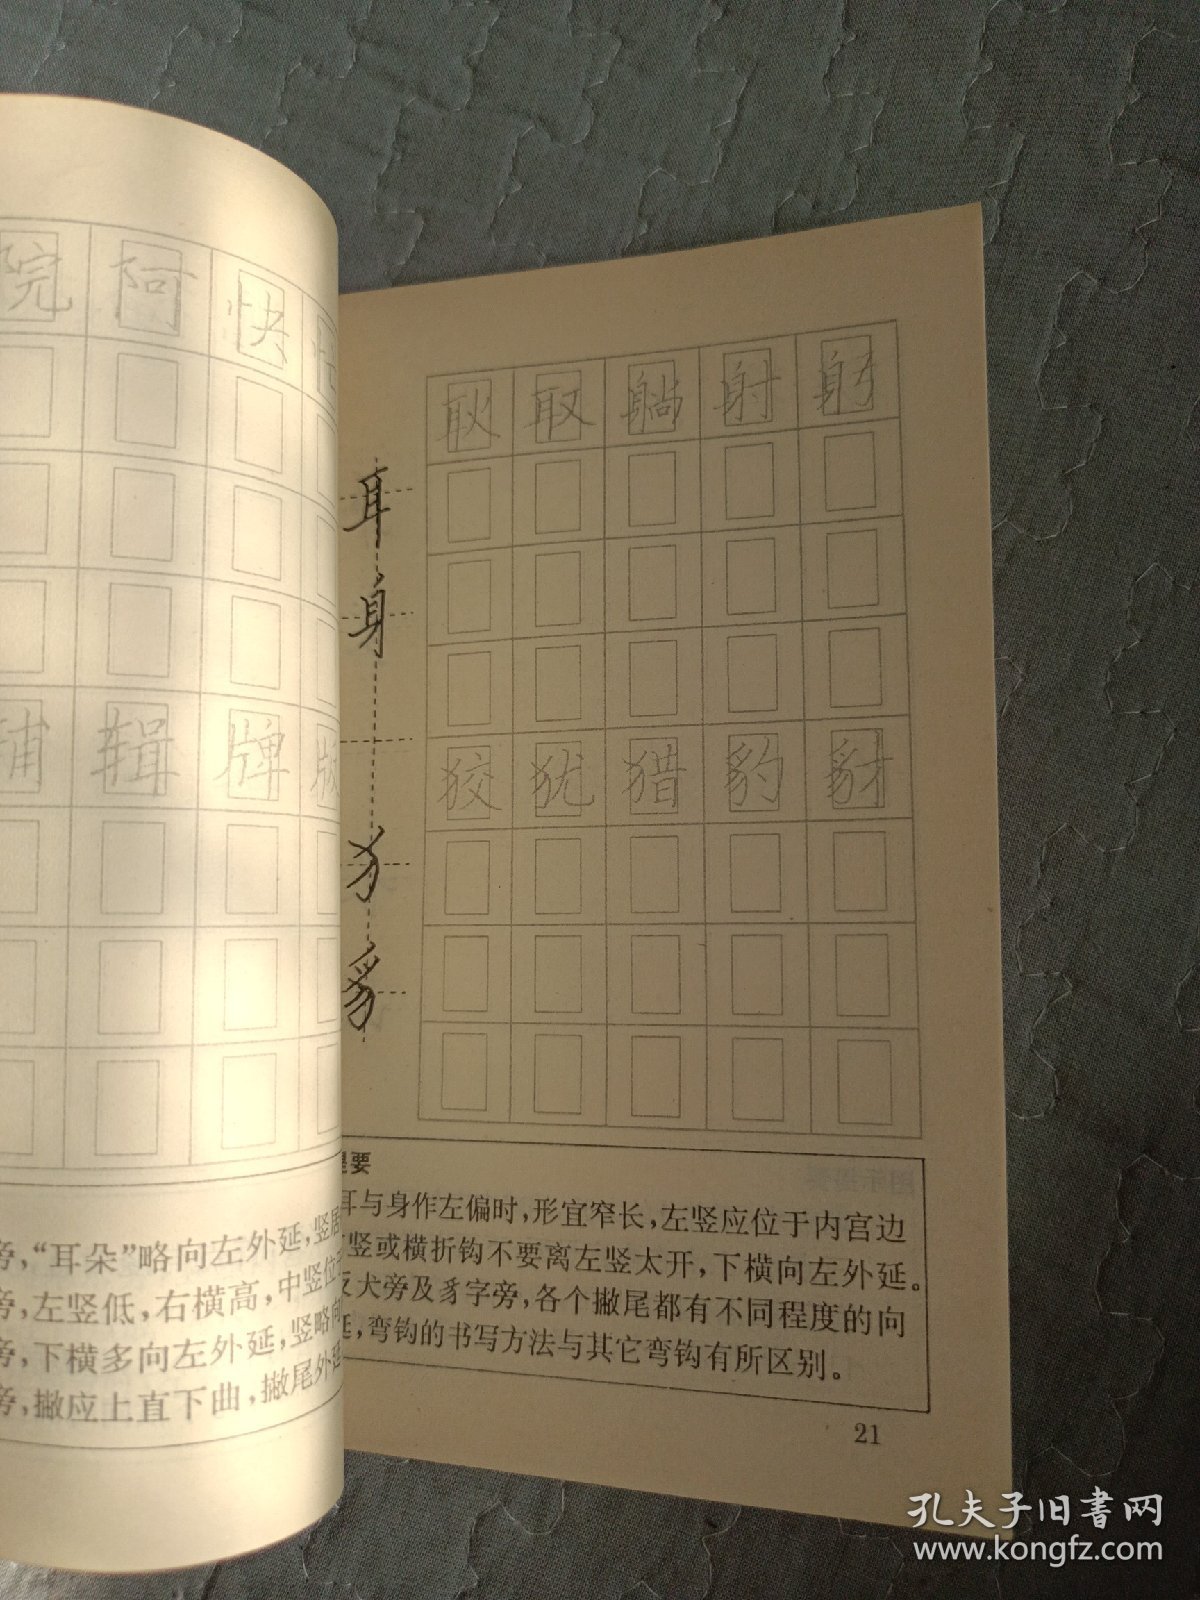 院 阿 快
辅 辑 牌 版
旁，“耳朵”略向左外延，竖居
旁，左竖低，右横高，中竖位于
旁，下横多向左外延，竖略向
旁，撇应上直下曲，撇尾外延
耳
身
犭
豸
耿 取 躺 射 躬
狡 犹 猎 豹 豺
提要
耳与身作左偏时，形宜窄长，左竖应位于内宫边
竖或横折钩不要离左竖太开，下横向左外延。
反犬旁及豸字旁，各个撇尾都有不同程度的向
延，弯钩的书写方法与其它弯钩有所区别。
21
孔夫子旧书网
www.kongfz.com